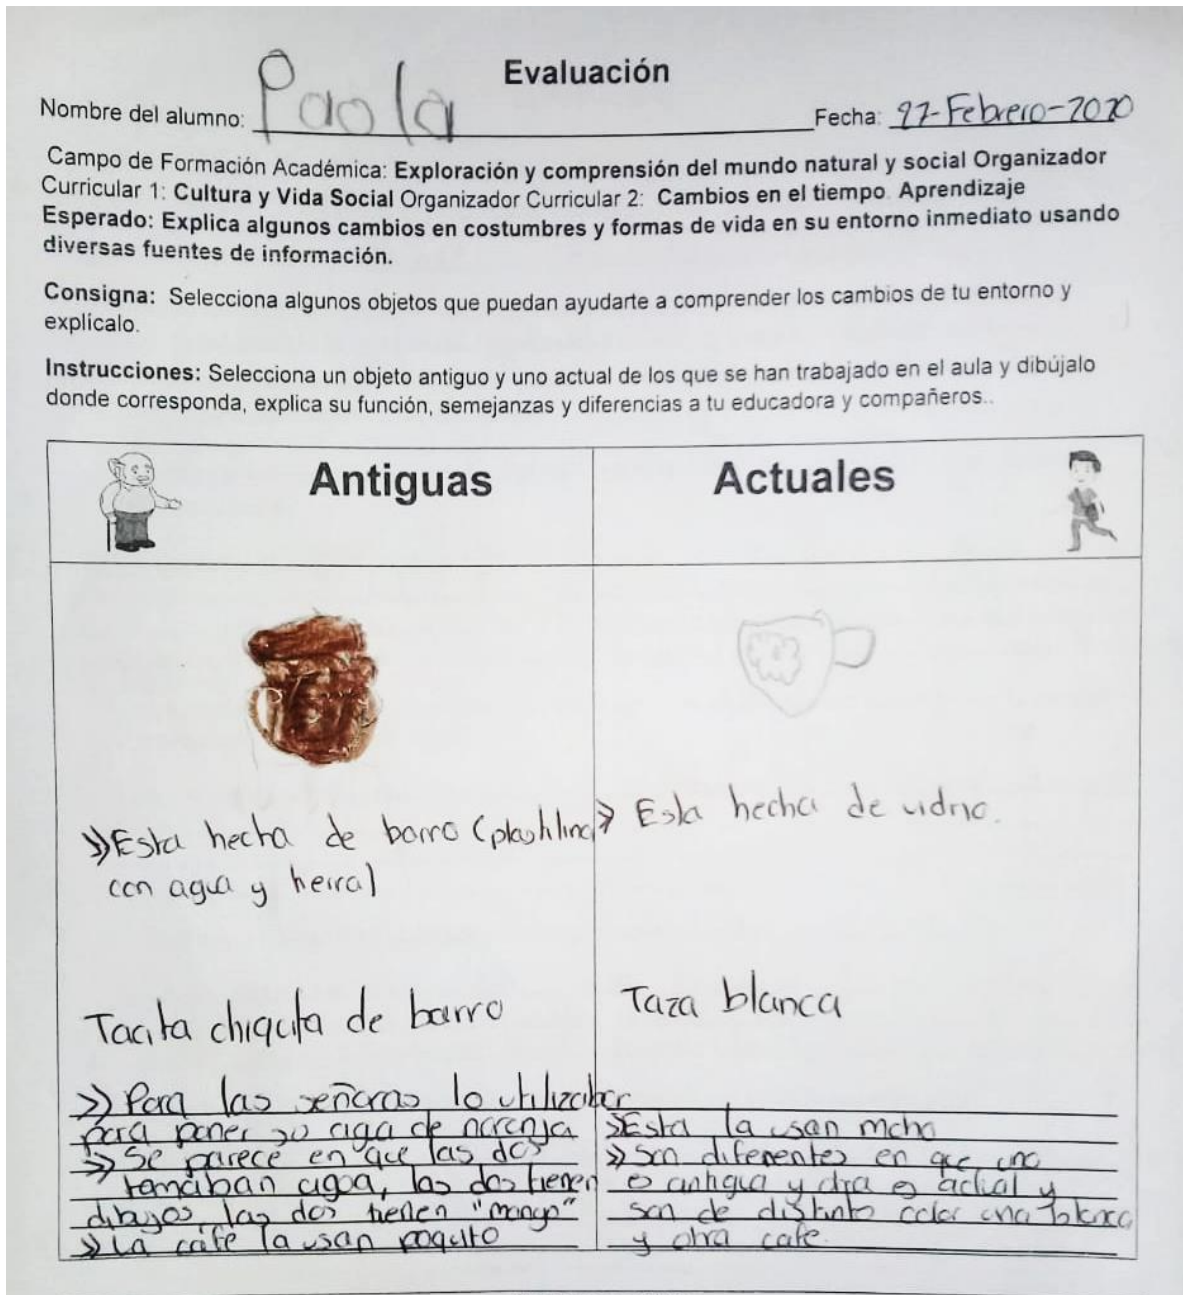 Evaluación
Nombre del alumno: Paola Fecha: 27-Febrero-2020
Campo de Formación Académica: Exploración y comprensión del mundo natural y social Organizador
Curricular 1: Cultura y Vida Social Organizador Curricular 2: Cambios en el tiempo. Aprendizaje
Esperado: Explica algunos cambios en costumbres y formas de vida en su entorno inmediato usando
diversas fuentes de información.
Consigna: Selecciona algunos objetos que puedan ayudarte a comprender los cambios de tu entorno y
explícalo.
Instrucciones: Selecciona un objeto antiguo y uno actual de los que se han trabajado en el aula y dibújalo
donde corresponda, explica su función, semejanzas y diferencias a tu educadora y compañeros..
Antiguas
Actuales
» Esta hecha de barro (plastilina
con agua y tierra)
Tacita chiquita de barro
» Para las señoras lo utilizaban
para poner su agua de naranja
» Se parece en que las dos
tomaban agua, las dos tienen
dibujos, las dos tienen "mango"
» La cafe la usan poquito
» Esta hecha de vidrio.
Taza blanca
» Esta la usan mcho
» Son diferentes en que una
es antigua y otra es actual y
son de distinto color una blanca
y otra cafe.